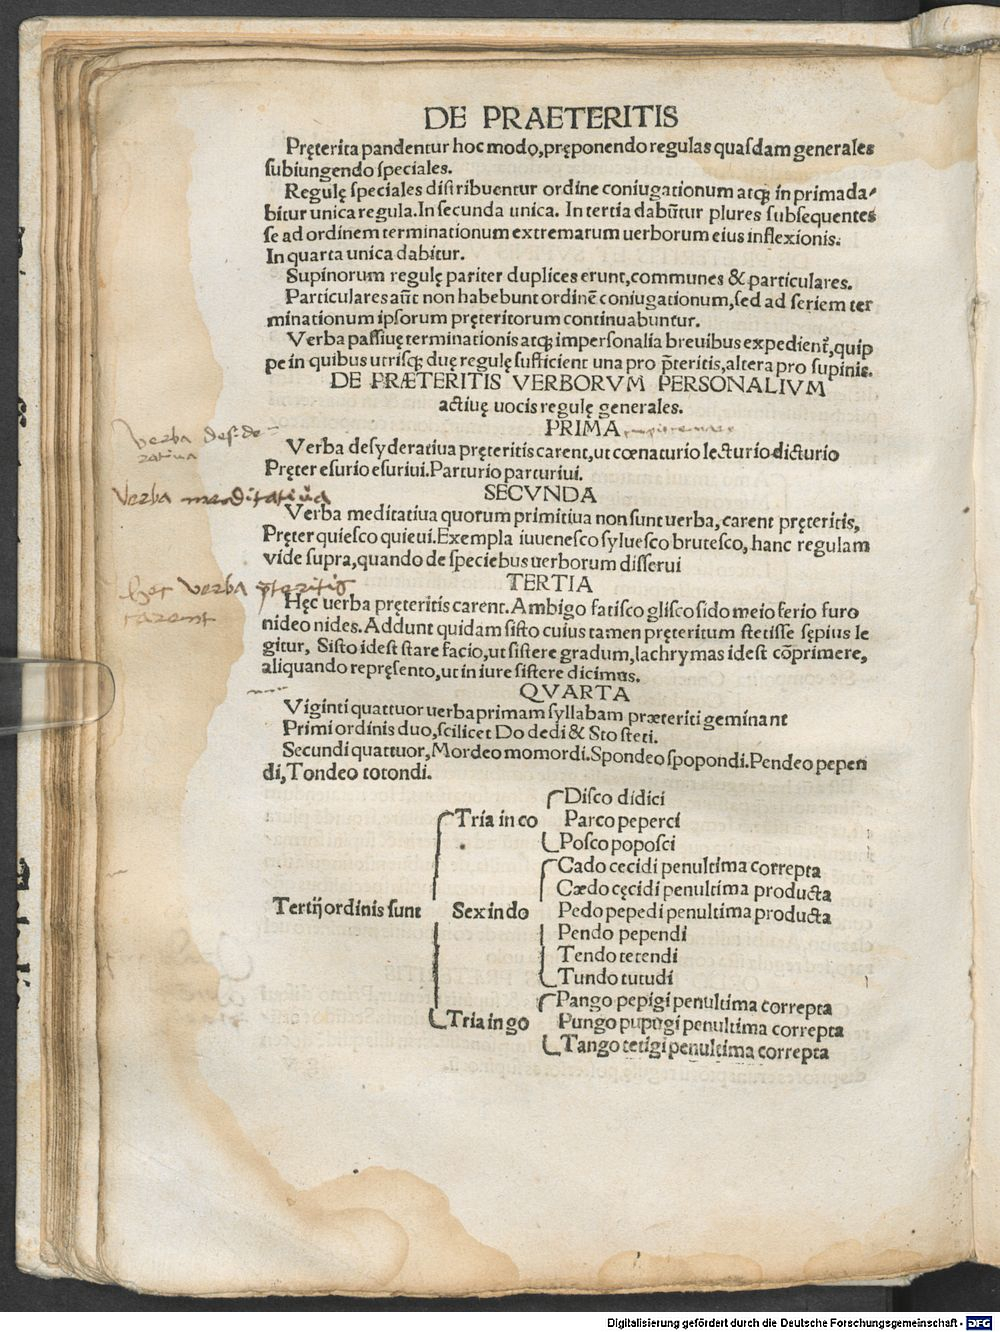 DE PRAETERITIS
Pręterita pandentur hoc modo, pręponendo regulas quasdam generales
subiungendo speciales.
Regulę speciales distribuentur ordine coniugationum atq; in prima da-
bitur unica regula. In secunda unica. In tertia dabūtur plures subsequentes
se ad ordinem terminationum extremarum uerborum eius inflexionis.
In quarta unica dabitur.
Supinorum regulę pariter duplices erunt, communes & particulares.
Particulares aūt non habebunt ordinē coniugationum, sed ad seriem ter
minationum ipsorum pręteritorum continuabuntur.
Verba passiuę terminationis atq; impersonalia breuibus expedient᷑, quip
pe in quibus utrisq; duę regulę sufficient una pro p̄teritis, altera pro supinis.
DE PRÆTERITIS VERBORVM PERSONALIVM
actiuę uocis regulę generales.
PRIMA
verba deside-
ratiua
Verba desyderatiua pręteritis carent, ut cœnaturio lecturio dicturio
Pręter esurio esuriui. Parturio parturiui.
SECVNDA
Verba meditatiua
Verba meditatiua quorum primitiua non sunt uerba, carent pręteritis,
Pręter quiesco quieui. Exempla iuuenesco syluesco brutesco, hanc regulam
vide supra, quando de speciebus uerborum disserui
TERTIA
hec verba p̄teritis
carent
Hęc uerba pręteritis carent. Ambigo fatisco glisco sido meio ferio furo
nideo nides. Addunt quidam sisto cuius tamen pręteritum stetisse sępius le
gitur, Sisto idest stare facio, ut sistere gradum, lachrymas idest cōprimere,
aliquando repręsento, ut in iure sistere dicimus.
QVARTA
Viginti quattuor uerba primam syllabam præteriti geminant
Primi ordinis duo, scilicet Do dedi & Sto steti.
Secundi quattuor, Mordeo momordi. Spondeo spopondi. Pendeo pepen
di, Tondeo totondi.
Tertij ordinis sunt
Tria in co
Disco didici
Parco peperci
Posco poposci
Sex in do
Cado cecidi penultima correpta
Cædo cęcidi penultima producta
Pedo pepedi penultima producta
Pendo pependi
Tendo tetendi
Tundo tutudi
Tria in go
Pango pepigi penultima correpta
Pungo pupugi penultima correpta
Tango tetigi penultima correpta
Digitalisierung gefördert durch die Deutsche Forschungsgemeinschaft - DFG